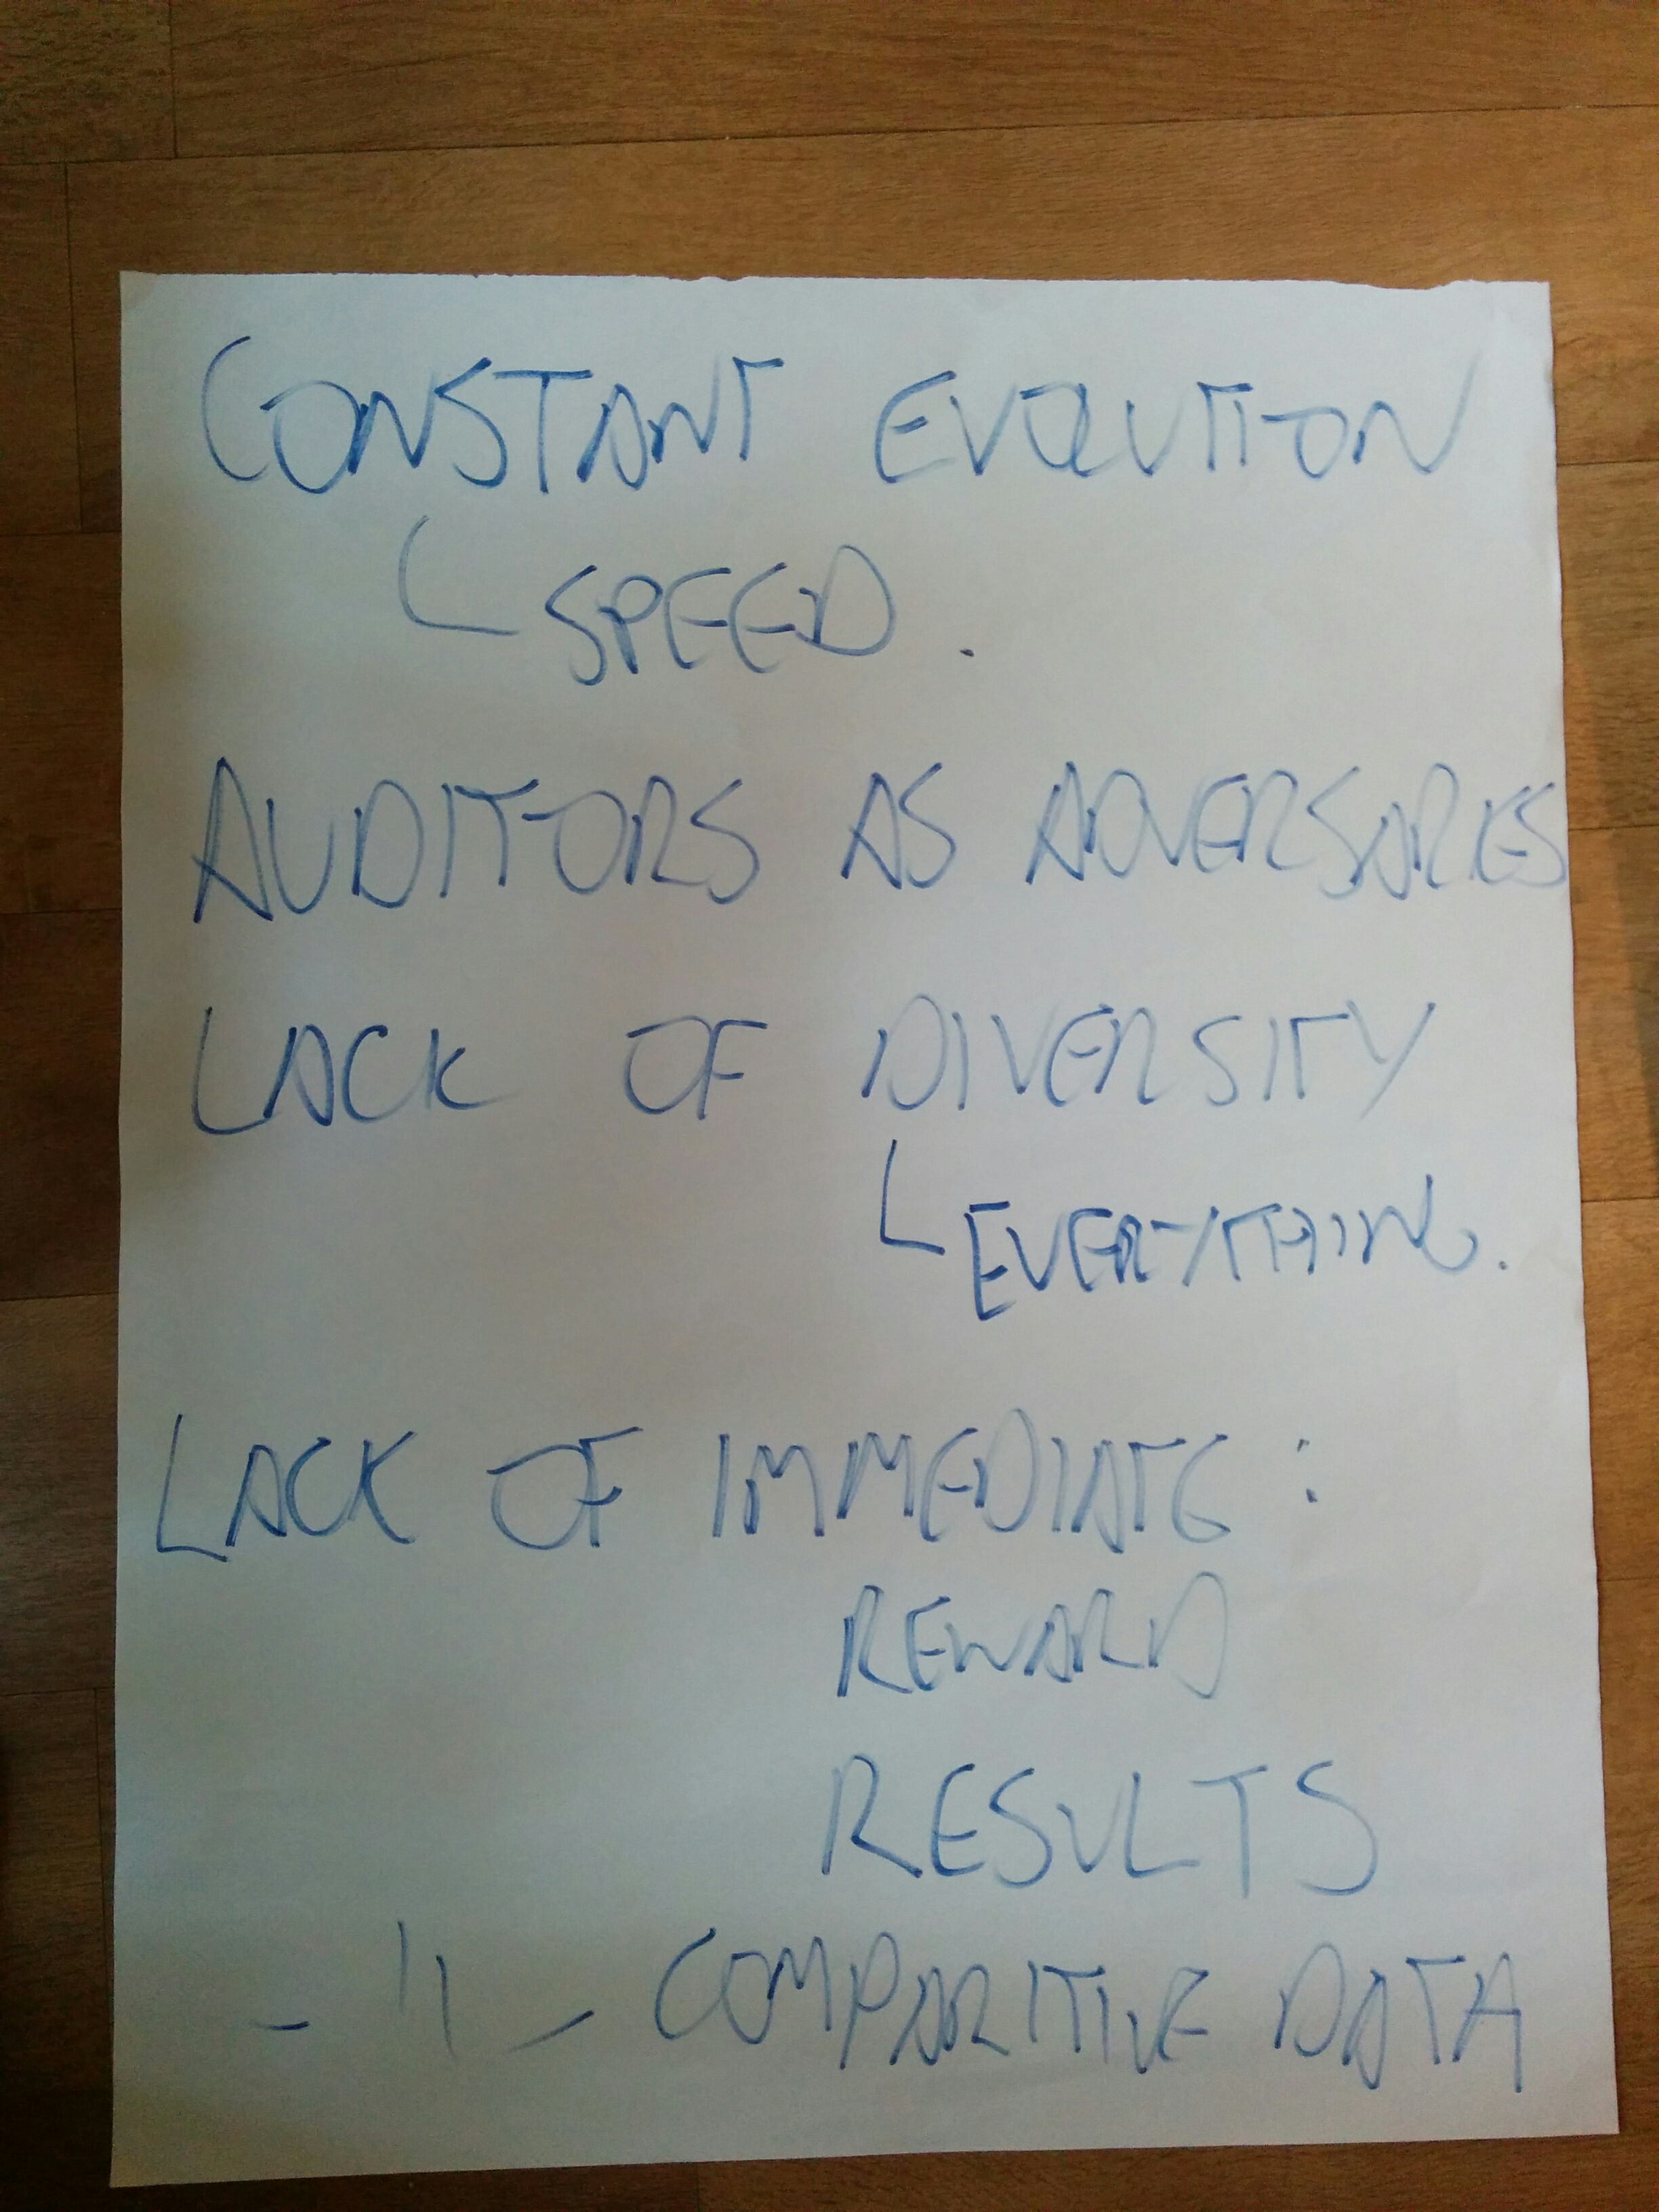 CONSTANT EVOLUTION
SPEED.
AUDITORS AS ADVERSARIES
LACK OF DIVERSITY
EVERYTHING.
LACK OF IMMEDIATE :
REWARD
RESULTS
- 11 - COMPARITIVE DATA